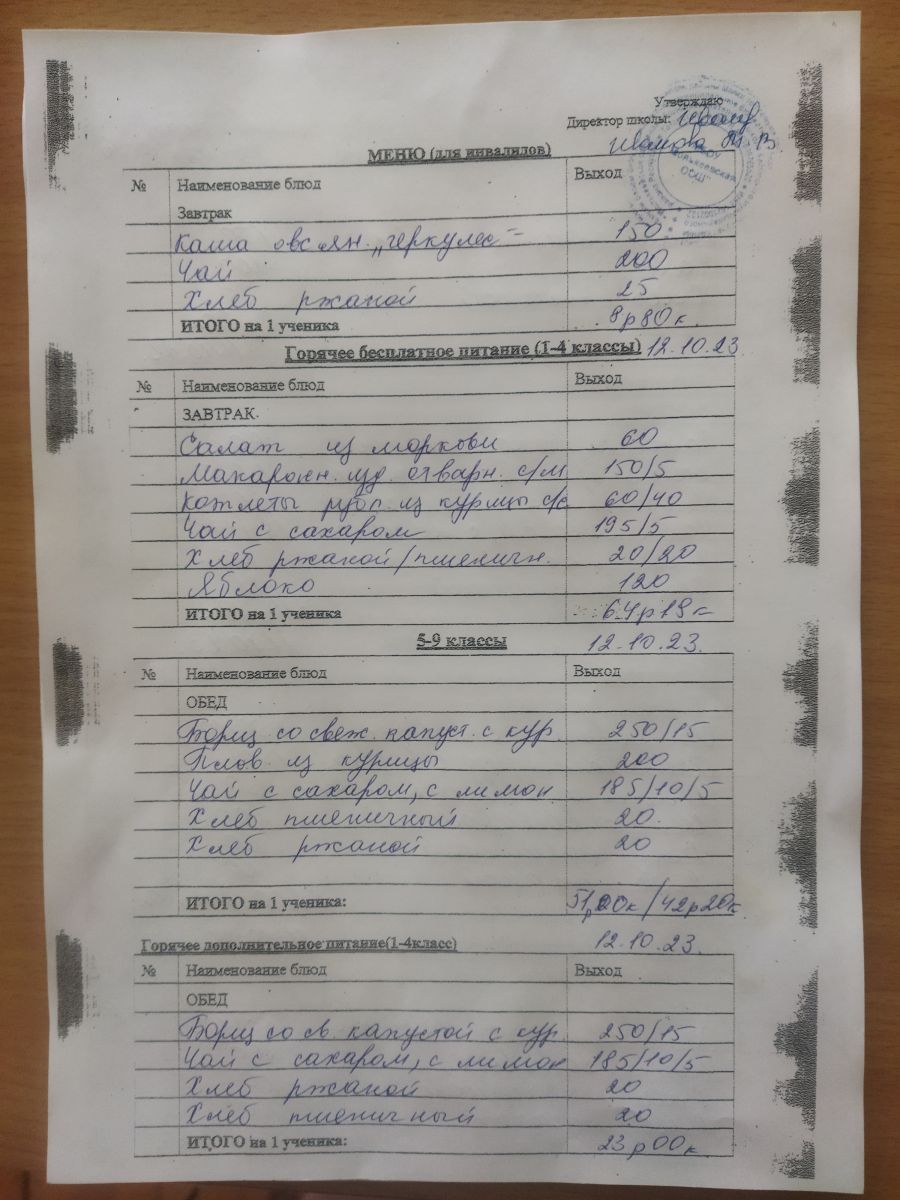 Утверждаю
Директор школы:
Иванова Т В
МЕНЮ (для инвалидов)
№ Наименование блюд Выход
Завтрак
Каша овсян. „геркулес" 150
Чай 200
Хлеб ржаной 25
ИТОГО на 1 ученика 9р80к.
Горячее бесплатное питание (1-4 классы) 12.10.23
№ Наименование блюд Выход
ЗАВТРАК.
Салат из моркови 60
Макарон. изд. отварн. с/м 150/5
Котлеты рубл. из курицы с/с 60/40
Чай с сахаром 195/5
Хлеб ржаной/пшеничн. 20/20
Яблоко 120
ИТОГО на 1 ученика 64р19к
5-9 классы 12.10.23.
№ Наименование блюд Выход
ОБЕД
Борщ со свеж. капуст. с кур. 250/15
Плов из курицы 200
Чай с сахаром, с лимон 185/10/5
Хлеб пшеничный 20.
Хлеб ржаной 20
ИТОГО на 1 ученика: 51р00к/42р20к
Горячее дополнительное питание(1-4класс) 12.10.23.
№ Наименование блюд Выход
ОБЕД
Борщ со св. капустой с кур. 250/15
Чай с сахаром, с лимон 185/10/5
Хлеб ржаной 20
Хлеб пшеничный 20
ИТОГО на 1 ученика: 23р00к.